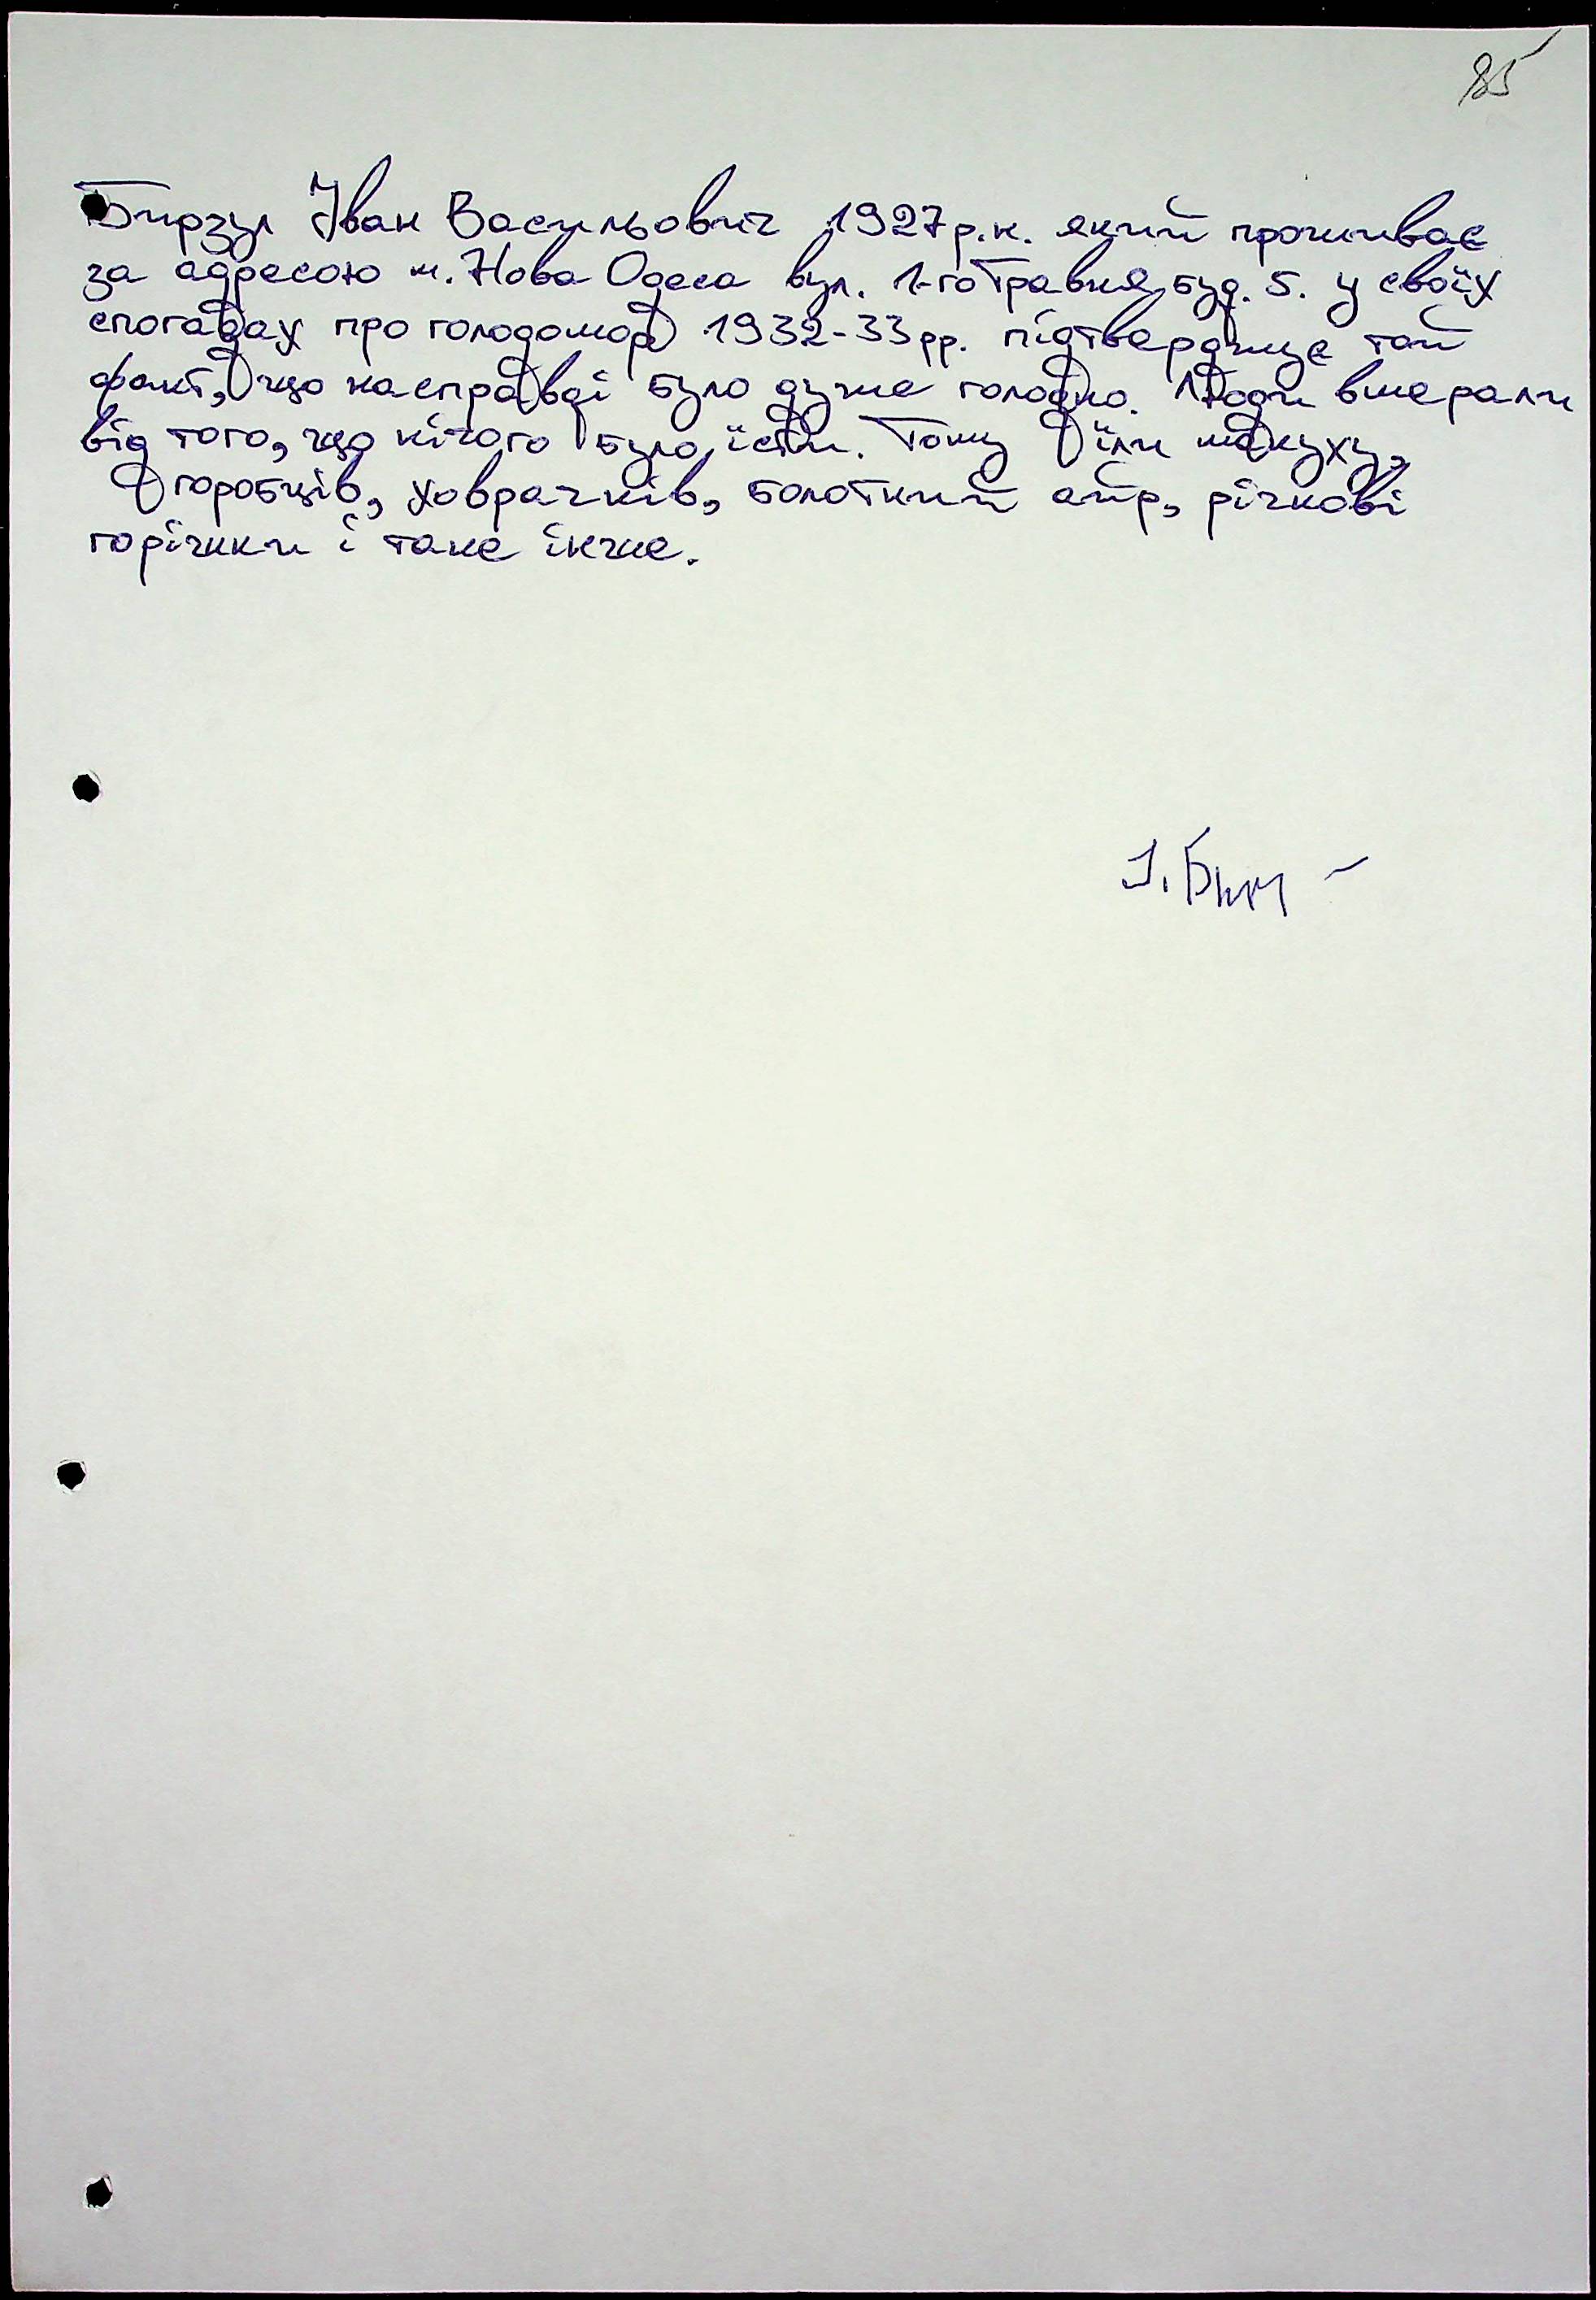 85
Бирзул Іван Васильович 1927р.н. який проживає
за адресою м. Нова Одеса вул. 1-го Травня, буд. 5. у своїх
спогадах про голодомор 1932-33рр. підтверджує той
факт, що насправді було дуже голодно. Люди вмерали
від того, що нічого було їсти. Тому їли макуху,
горобців, ховрачків, болотний аїр, річкові
горішки і таке інше.